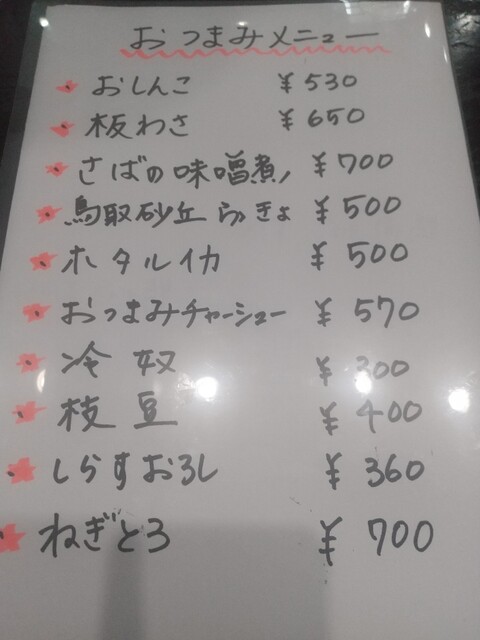 おつまみメニュー
おしんこ ¥530
板わさ ¥650
さばの味噌煮 ¥700
鳥取砂丘らっきょ ¥500
ホタルイカ ¥500
おつまみチャーシュー ¥570
冷奴 ¥300
枝豆 ¥400
しらすおろし ¥360
ねぎとろ ¥700